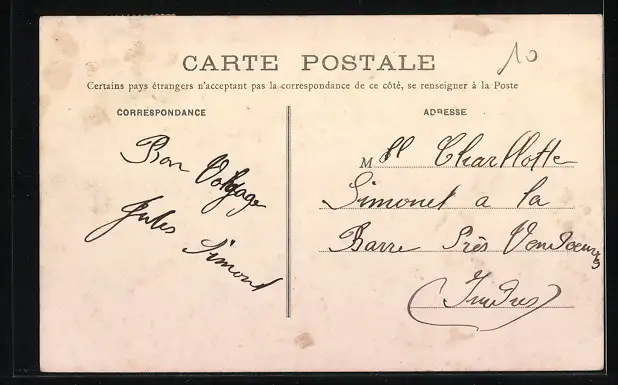 10
CARTE POSTALE
Certains pays étrangers n'acceptant pas la correspondance de ce côté, se renseigner à la Poste
CORRESPONDANCE
Bon Voyage
Jules Simond
ADRESSE
Mll Charllotte
Simonet a la
Barre Près
(Indres)